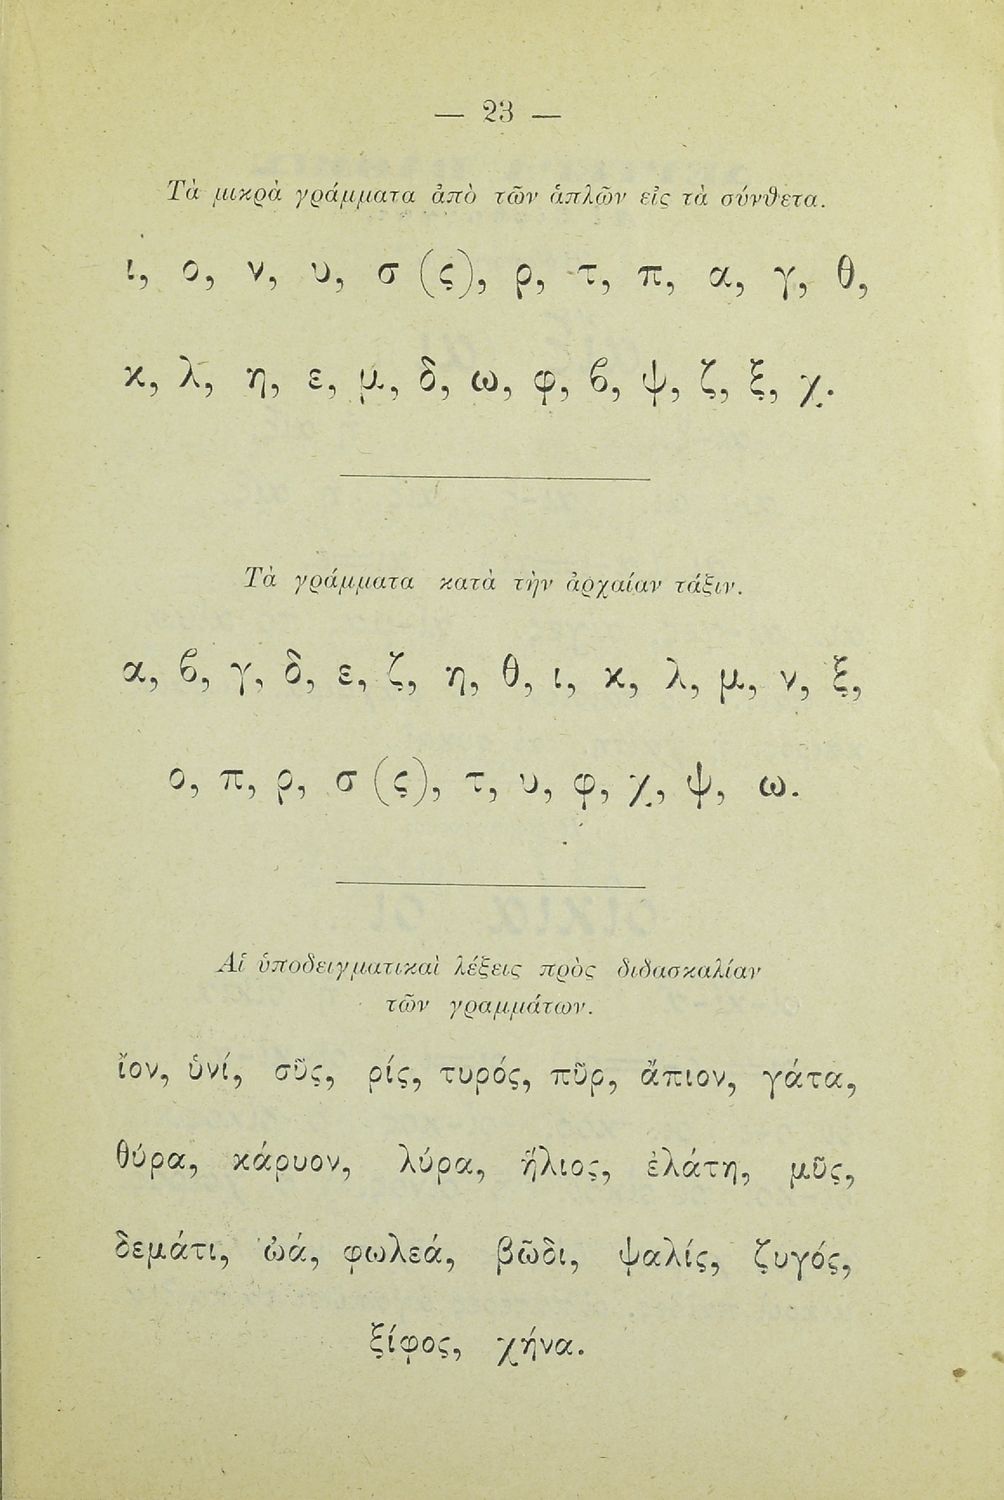 — 23 —
Τὰ μικρὰ γράμματα ἀπὸ τῶν ἁπλῶν εἰς τὰ σύνθετα.
ι, ο, ν, υ, σ (ς), ρ, τ, π, α, γ, θ,
κ, λ, η, ε, μ, δ, ω, φ, ϐ, ψ, ζ, ξ, χ.
Τὰ γράμματα κατὰ τὴν ἀρχαίαν τάξιν.
α, ϐ, γ, δ, ε, ζ, η, θ, ι, κ, λ, μ, ν, ξ,
ο, π, ρ, σ (ς), τ, υ, φ, χ, ψ, ω.
Αἱ ὑποδειγματικαὶ λέξεις πρὸς διδασκαλίαν
τῶν γραμμάτων.
ἴον, ὑνί, σῦς, ρίς, τυρός, πῦρ, ἄπιον, γάτα,
θύρα, κάρυον, λύρα, ἥλιος, ἐλάτη, μῦς,
δεμάτι, ὠά, φωλεά, βῶδι, ψαλίς, ζυγός,
ξίφος, χήνα.